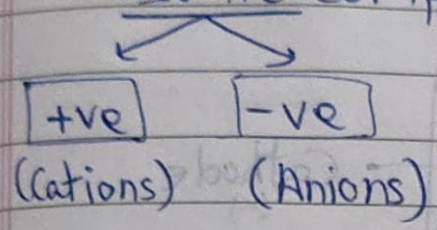 +ve -ve
(Cations) (Anions)